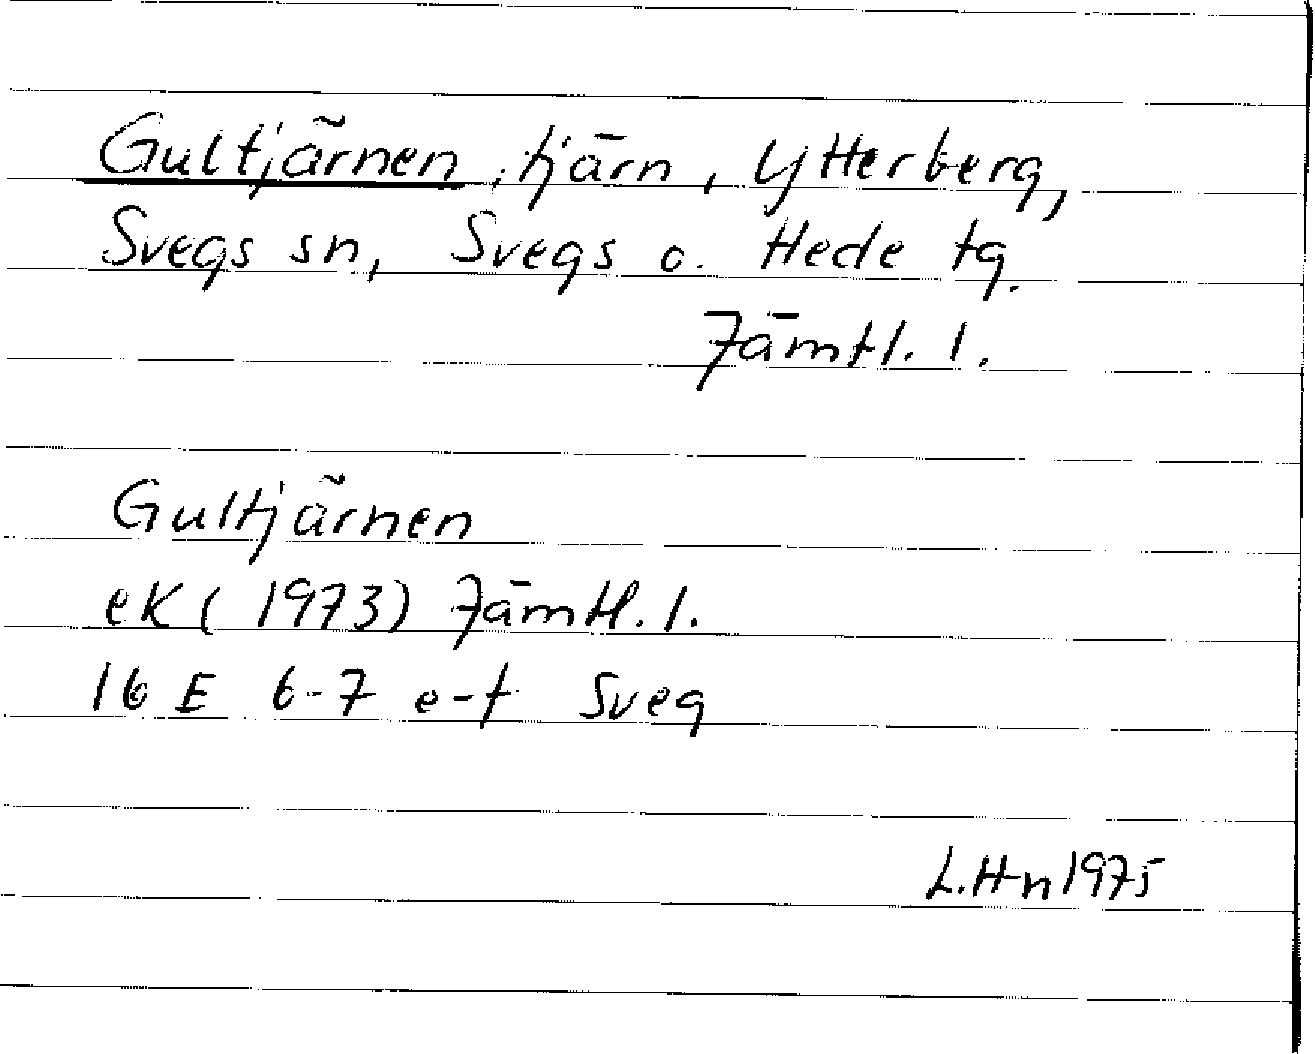 Gultjärnen, tjärn, Ytterberg,
Svegs sn, Svegs o. Hede tg.
Jämtl. l.
Gultjärnen
ek (1973) Jämtl. l.
16 E 6-7 e-f Sveg
L.Hn 1975